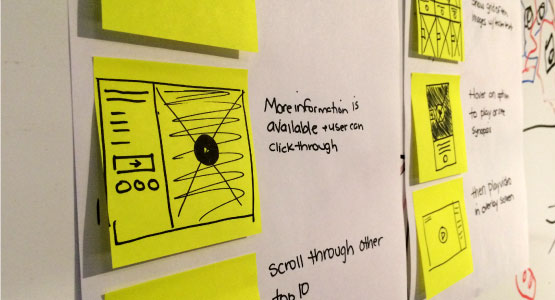 More information is
available + user can
click through
scroll through other
top 10
Show grid of ten
images w/
Hover on option
to play or
synopsis
then play video
in overlay screen